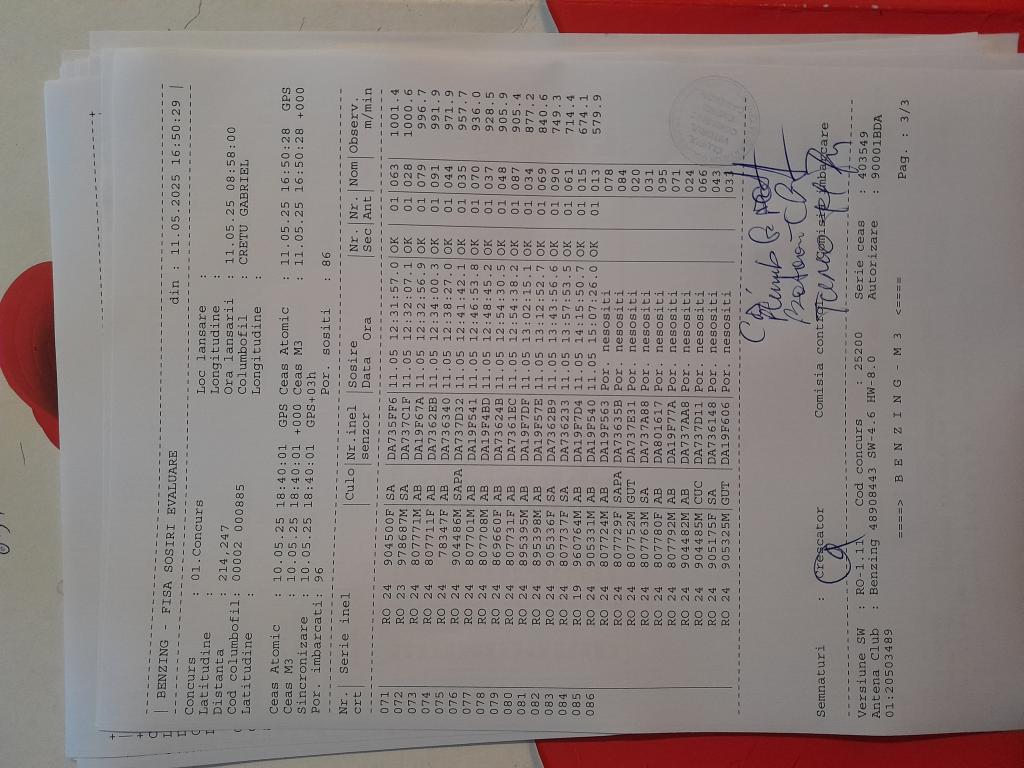 | BENZING - FISA SOSIRI EVALUARE din : 11.05.2025 16:50:29 |
Concurs : 01.Concurs Loc lansare :
Latitudine : Longitudine :
Distanta : 214,247 Ora lansarii : 11.05.25 08:58:00
Cod columbofil: 00002 000885 Columbofil : CRETU GABRIEL
Latitudine : Longitudine :
Ceas Atomic : 10.05.25 18:40:01 GPS Ceas Atomic : 11.05.25 16:50:28 GPS
Ceas M3 : 10.05.25 18:40:01 +000 Ceas M3 : 11.05.25 16:50:28 +000
Sincronizare : 10.05.25 18:40:01 GPS+03h
Por. imbarcati: 96 Por. sositi : 86
Nr. | Serie inel | Culo | Nr.inel | Sosire | Nr. | Nr. | Nom | Observ.
crt | senzor | Data Ora | Sec | Ant | m/min
071 | RO 24 904500F | SA | DA735FF6 | 11.05 12:31:57.0 | OK | 01 | 063 | 1001.4
072 | RO 23 978687M | SA | DA737C1F | 11.05 12:32:07.1 | OK | 01 | 028 | 1000.6
073 | RO 24 807771M | AB | DA19F67A | 11.05 12:32:56.9 | OK | 01 | 079 | 996.7
074 | RO 24 807711F | AB | DA7362EB | 11.05 12:34:00.3 | OK | 01 | 091 | 991.9
075 | RO 24 78347F | AB | DA736340 | 11.05 12:38:27.0 | OK | 01 | 044 | 971.9
076 | RO 24 904486M | SAPA | DA737D32 | 11.05 12:41:42.1 | OK | 01 | 035 | 957.7
077 | RO 24 807701M | AB | DA19F541 | 11.05 12:46:53.8 | OK | 01 | 070 | 936.0
078 | RO 24 807708M | AB | DA19F4BD | 11.05 12:48:45.2 | OK | 01 | 037 | 928.5
079 | RO 24 869660F | AB | DA73624B | 11.05 12:54:30.5 | OK | 01 | 048 | 905.9
080 | RO 24 807731F | AB | DA7361EC | 11.05 12:54:38.2 | OK | 01 | 087 | 905.4
081 | RO 24 895395M | AB | DA19F7DF | 11.05 13:02:15.1 | OK | 01 | 034 | 877.2
082 | RO 24 895398M | AB | DA19F57E | 11.05 13:12:52.7 | OK | 01 | 069 | 840.6
083 | RO 24 905336F | SA | DA7362B9 | 11.05 13:43:56.6 | OK | 01 | 090 | 749.3
084 | RO 24 807737F | SA | DA736233 | 11.05 13:57:53.5 | OK | 01 | 061 | 714.4
085 | RO 19 960764M | AB | DA19F7D4 | 11.05 14:15:50.7 | OK | 01 | 015 | 674.1
086 | RO 24 905331M | AB | DA19F540 | 11.05 15:07:26.0 | OK | 01 | 013 | 579.9
RO 24 807724M | AB | DA19F563 | Por. nesositi | 078
RO 24 807729F | SAPA | DA73635B | Por. nesositi | 084
RO 24 807752M | GUT | DA737E31 | Por. nesositi | 020
RO 24 807758M | SA | DA737A98 | Por. nesositi | 031
RO 24 807780F | AB | DA801617 | Por. nesositi | 095
RO 24 807792M | AB | DA19F77A | Por. nesositi | 071
RO 24 904482M | AB | DA737AAB | Por. nesositi | 024
RO 24 904485M | CUC | DA737D11 | Por. nesositi | 066
RO 24 905175F | SA | DA736148 | Por. nesositi | 043
RO 24 905325M | GUT | DA19F606 | Por. nesositi | 033
Semnaturi : Crescator Comisia contra Comisie imbarcare
Versiune SW : RO-1.11 Cod concurs : 25200 Serie ceas : 403549
Antena Club : Benzing 48908443 SW-4.6 HW-8.0 Autorizare : 90001BDA
01:20503489
====> B E N Z I N G - M 3 <==== Pag. : 3/3